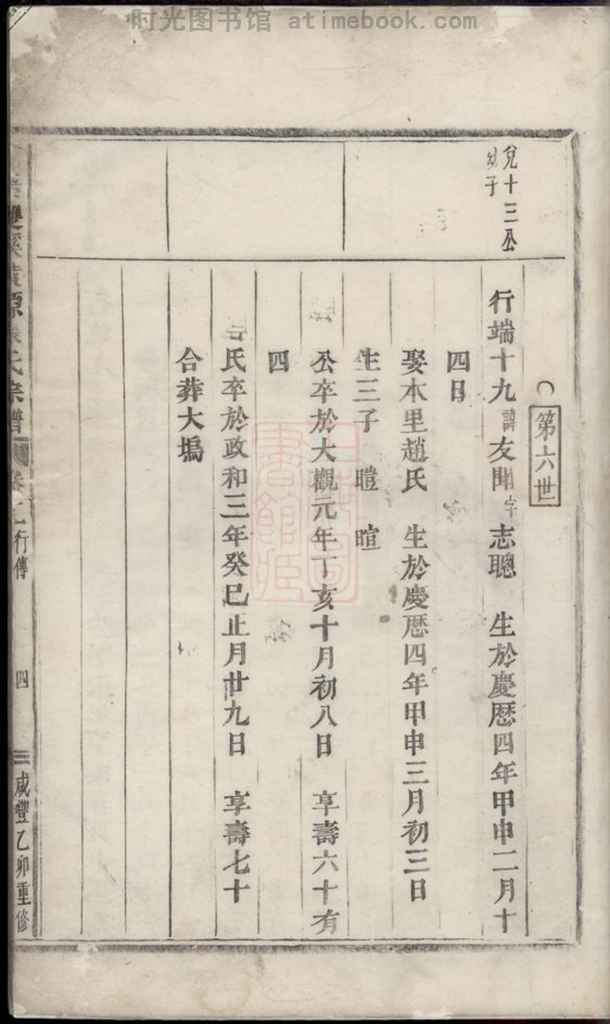 时光图书馆 atimebook.com
第六世
兌十三公
幼子
行端十九 諱友聞 字志聰 生於慶厯四年甲申二月十
四日
娶木里趙氏 生於慶厯四年甲申三月初三日
生三子 暟 暄
公卒於大觀元年丁亥十月初八日 享壽六十有
四
氏卒於政和三年癸巳止月廿九日 享壽七十
合葬大塢
雙溪 源 氏宗譜 卷二行傳 四 咸豐乙卯重修